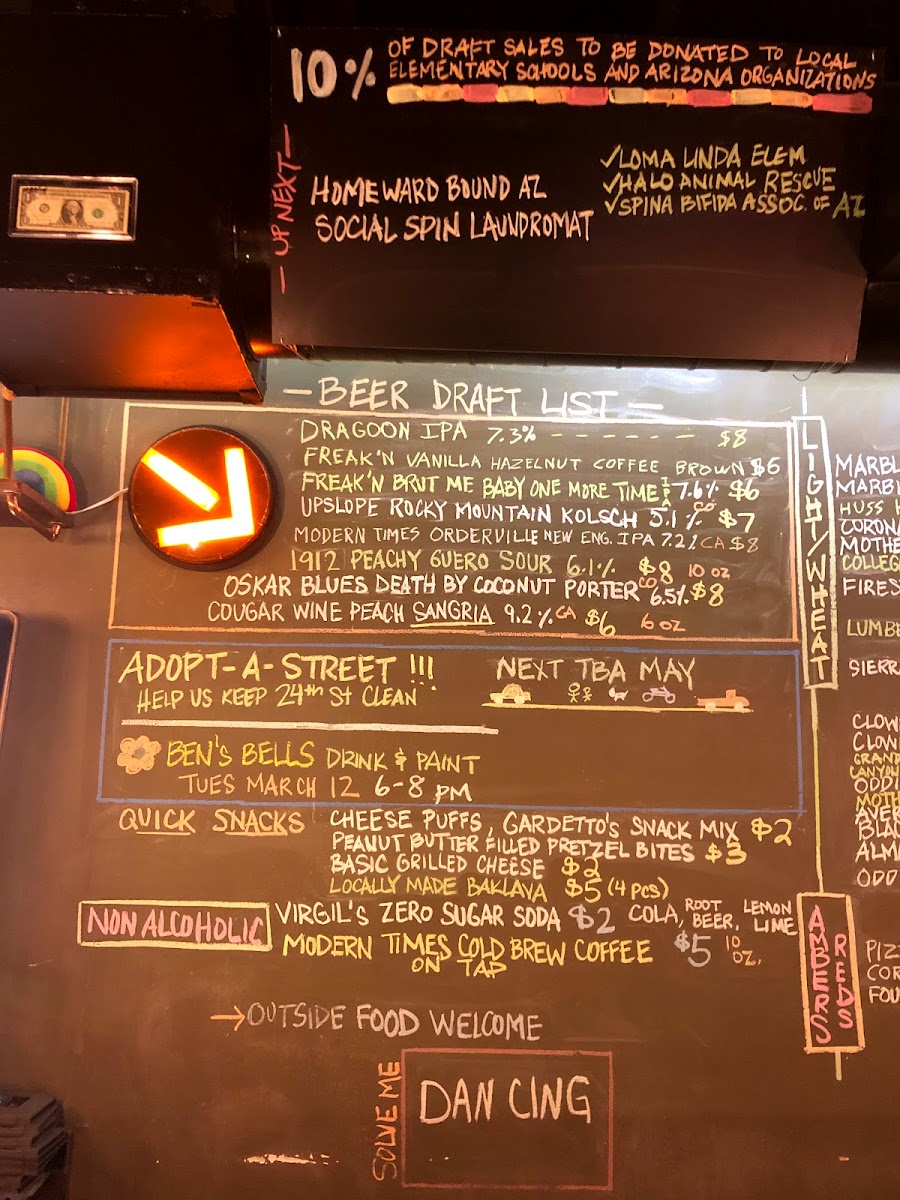 10% OF DRAFT SALES TO BE DONATED TO LOCAL
ELEMENTARY SCHOOLS AND ARIZONA ORGANIZATIONS
—UP NEXT—
HOMEWARD BOUND AZ
SOCIAL SPIN LAUNDROMAT
✓LOMA LINDA ELEM
✓HALO ANIMAL RESCUE
✓SPINA BIFIDA ASSOC. OF AZ
—BEER DRAFT LIST—
DRAGOON IPA 7.3% - - - - - - $8
FREAK'N VANILLA HAZELNUT COFFEE BROWN $6
FREAK'N BRUT ME BABY ONE MORE TIME IPA 7.6% $6
UPSLOPE ROCKY MOUNTAIN KOLSCH 5.1% CO $7
MODERN TIMES ORDERVILLE NEW ENG. IPA 7.2% CA $8
1912 PEACHY GUERO SOUR 6.1% $8 10 OZ
OSKAR BLUES DEATH BY COCONUT PORTER CO 6.5% $8
COUGAR WINE PEACH SANGRIA 9.2% CA $6 6 OZ
ADOPT-A-STREET !!!
HELP US KEEP 24th ST CLEAN
NEXT TBA MAY
BEN'S BELLS DRINK & PAINT
TUES MARCH 12 6-8 PM
QUICK SNACKS
CHEESE PUFFS, GARDETTO'S SNACK MIX $2
PEANUT BUTTER FILLED PRETZEL BITES $3
BASIC GRILLED CHEESE $2
LOCALLY MADE BAKLAVA $5 (4 PCS)
NON ALCOHOLIC
VIRGIL'S ZERO SUGAR SODA $2 COLA, ROOT BEER, LEMON LIME
MODERN TIMES COLD BREW COFFEE $5 10 OZ.
ON TAP
→OUTSIDE FOOD WELCOME
SOLVE ME
DAN CING
LIGHT/WHEAT
MARBL
MARBL
HUSS H
CORONA
MOTHE
COLLEG
FIRES
LUMBE
SIERRA
CLOW
CLOWN
GRAND
CANYON
ODDI
MOTH
AVER
BLAC
ALMA
ODD
AMBERS
REDS
PIZ
COR
FOU